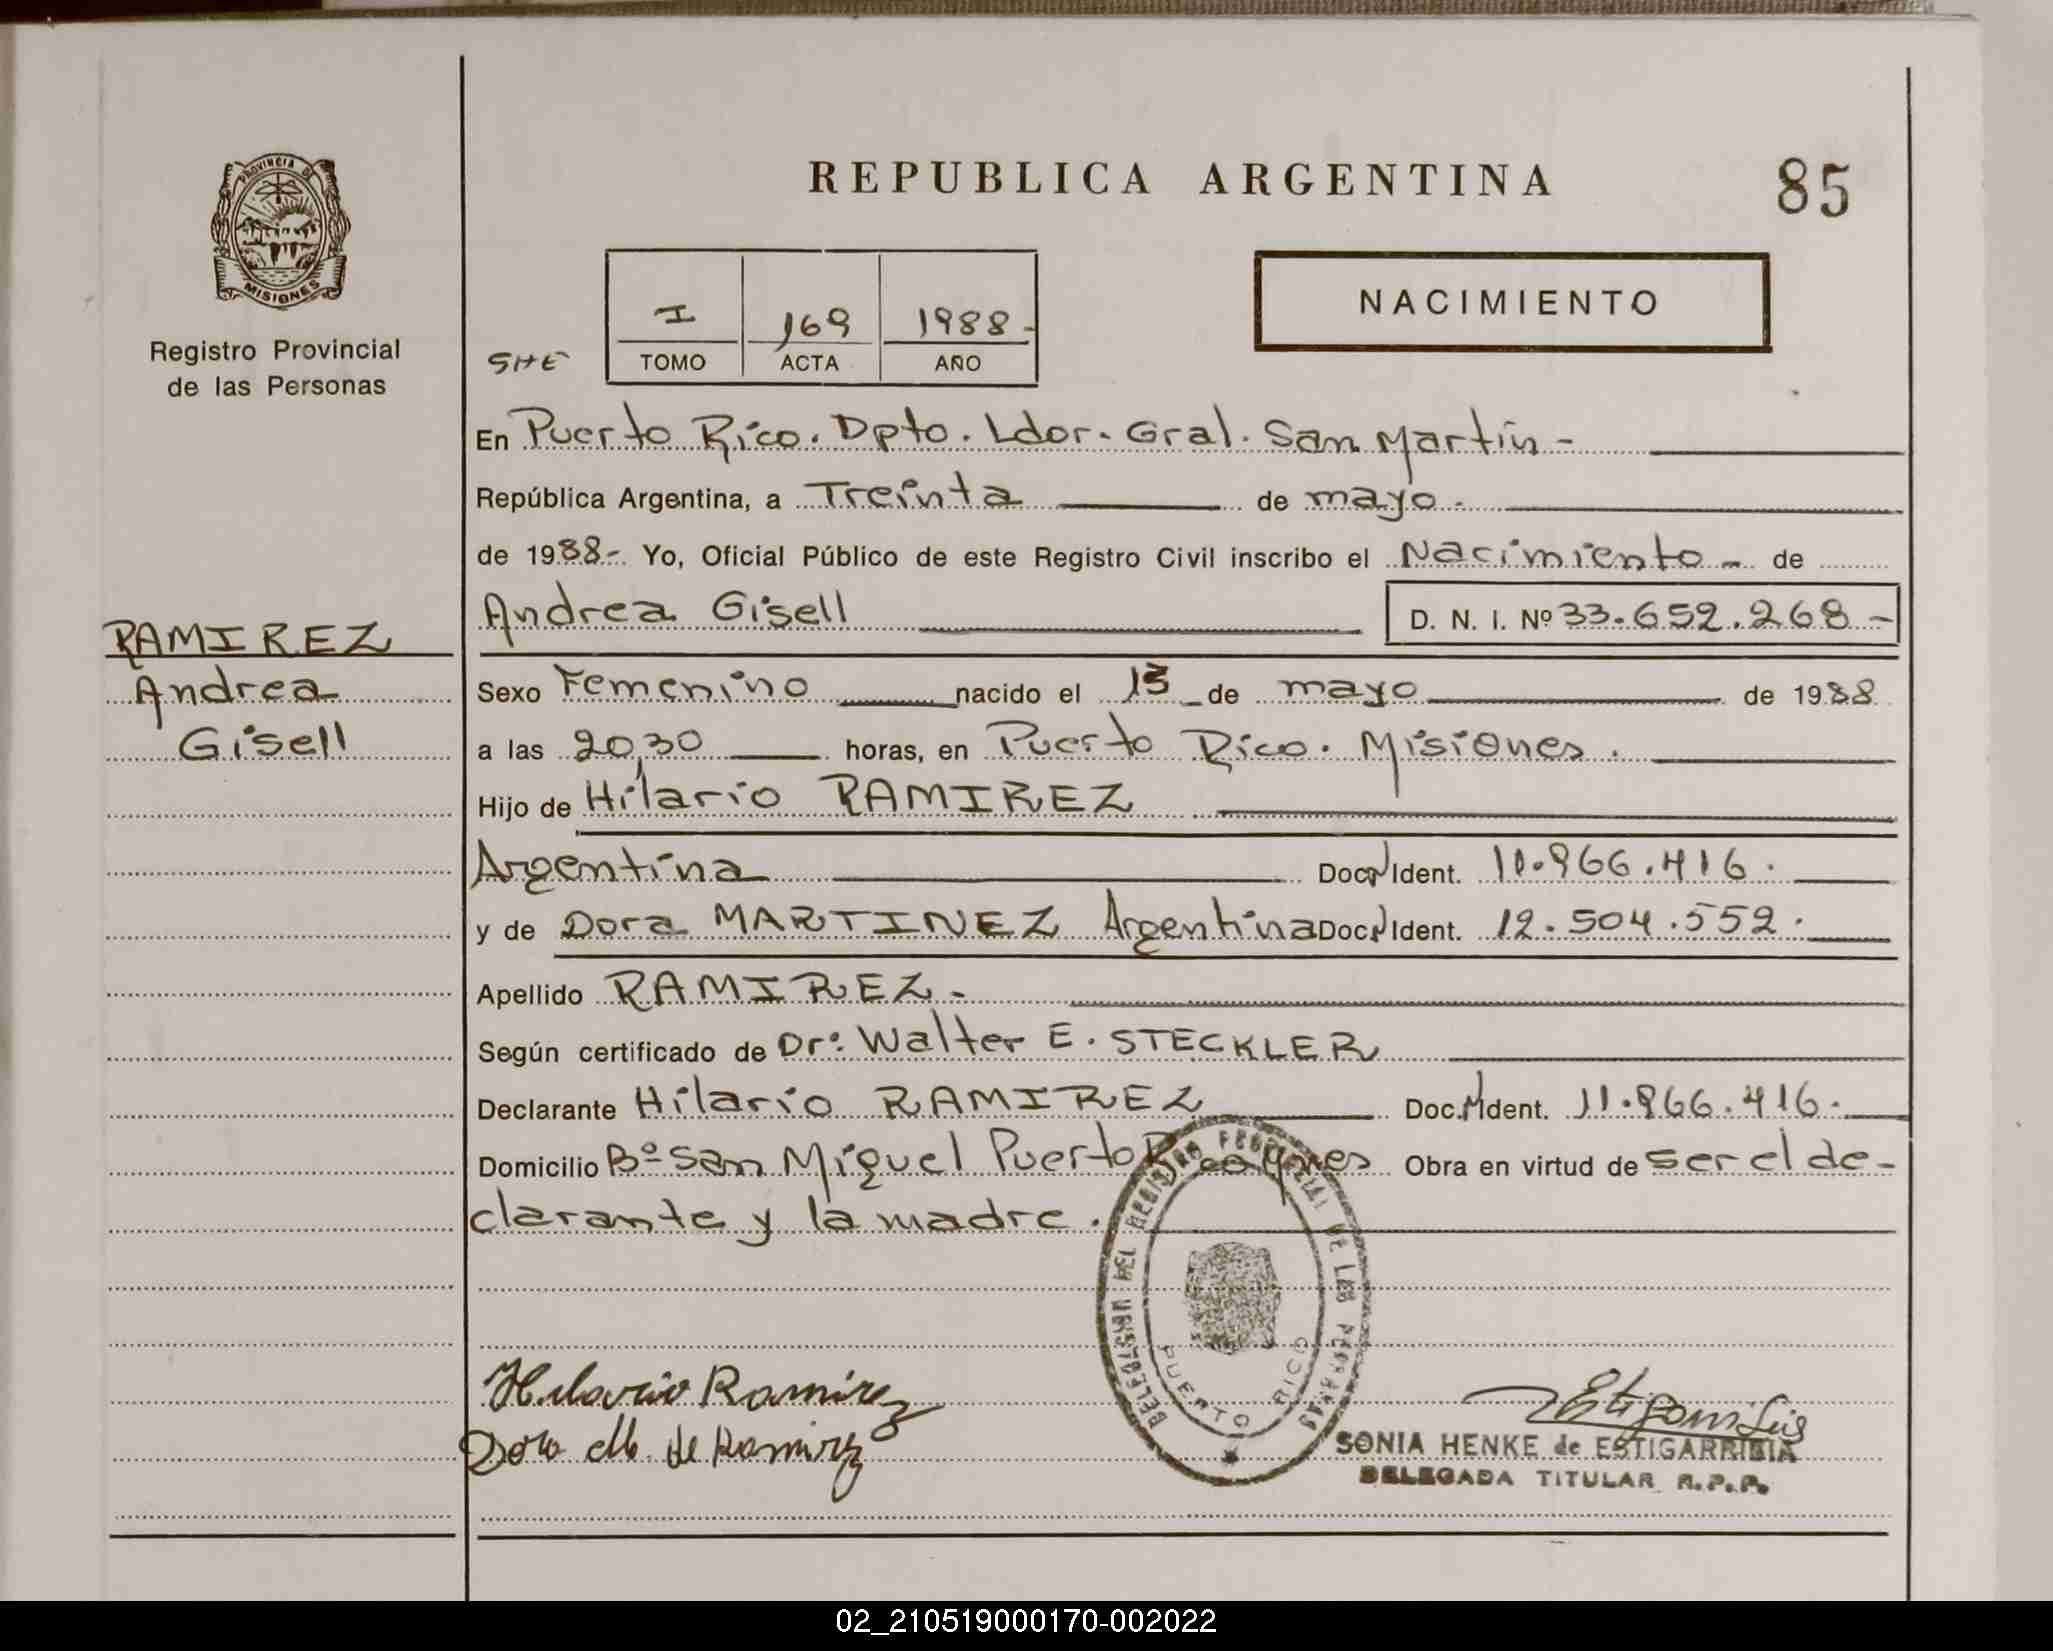 REPUBLICA ARGENTINA
85
PROVINCIA DE
MISIONES
Registro Provincial
de las Personas
I 169 1988-
TOMO ACTA AÑO
SHE
NACIMIENTO
En Puerto Rico. Dpto. Ldor. Gral. San Martín -
República Argentina, a Treinta de mayo.
de 1988.- Yo, Oficial Público de este Registro Civil inscribo el Nacimiento - de
Andrea Gisell D. N. I. Nº 33.652.268 -
RAMIREZ
Andrea
Gisell
Sexo Femenino nacido el 13 de mayo de 1988
a las 20,30 horas, en Puerto Rico. Misiones.
Hijo de Hilario RAMIREZ
Argentina Doc. Ident. 11.966.416.
y de Dora MARTINEZ Argentina Doc. Ident. 12.504.552.
Apellido RAMIREZ -
Según certificado de Dr. Walter E. STECKLER
Declarante Hilario RAMIREZ Doc. Ident. 11.966.416.
Domicilio Bº San Miguel Puerto Obra en virtud de ser el de-
clarante y la madre.
DELEGACION DEL REGISTRO PROVINCIAL DE LAS PERSONAS
PUERTO RICO
Hilario Ramirez
Dora M. de Ramirez
SONIA HENKE de ESTIGARRIBIA
DELEGADA TITULAR R.P.P.
02_210519000170-002022